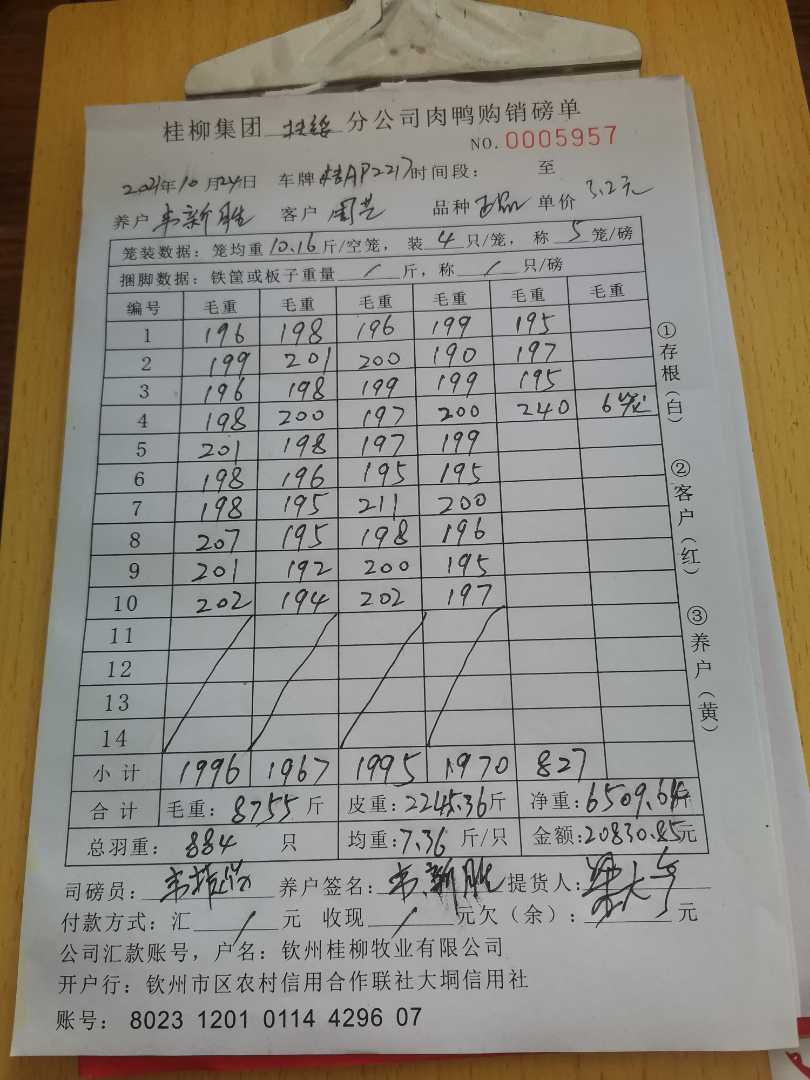 桂柳集团 扶绥 分公司肉鸭购销磅单
NO. 0005957
2021年10月24日 车牌 桂AP2217 时间段： 至
养户 韦新胜 客户 周芸 品种 正品 单价 3.2元
笼装数据：笼均重 10.16 斤/空笼，装 4 只/笼，称 5 笼/磅
捆脚数据：铁筐或板子重量 / 斤，称 / 只/磅
编号 毛重 毛重 毛重 毛重 毛重 毛重
1 196 198 196 199 195
2 199 201 200 190 197
3 196 198 199 199 195
4 198 200 197 200 240 6笼
5 201 198 197 199
6 198 196 195 195
7 198 195 211 200
8 207 195 198 196
9 201 192 200 195
10 202 194 202 197
11
12
13
14
小计 1996 1967 1995 1970 827
合计 毛重：8755斤 皮重：2245.36斤 净重：6509.64斤
总羽重：884 只 均重：7.36 斤/只 金额：20830.85元
①存根（白）
②客户（红）
③养户（黄）
司磅员： 养户签名：韦新胜 提货人：
付款方式：汇 / 元 收现 / 元欠（余）： / 元
公司汇款账号，户名：钦州桂柳牧业有限公司
开户行：钦州市区农村信用合作联社大垌信用社
账号： 8023 1201 0114 4296 07